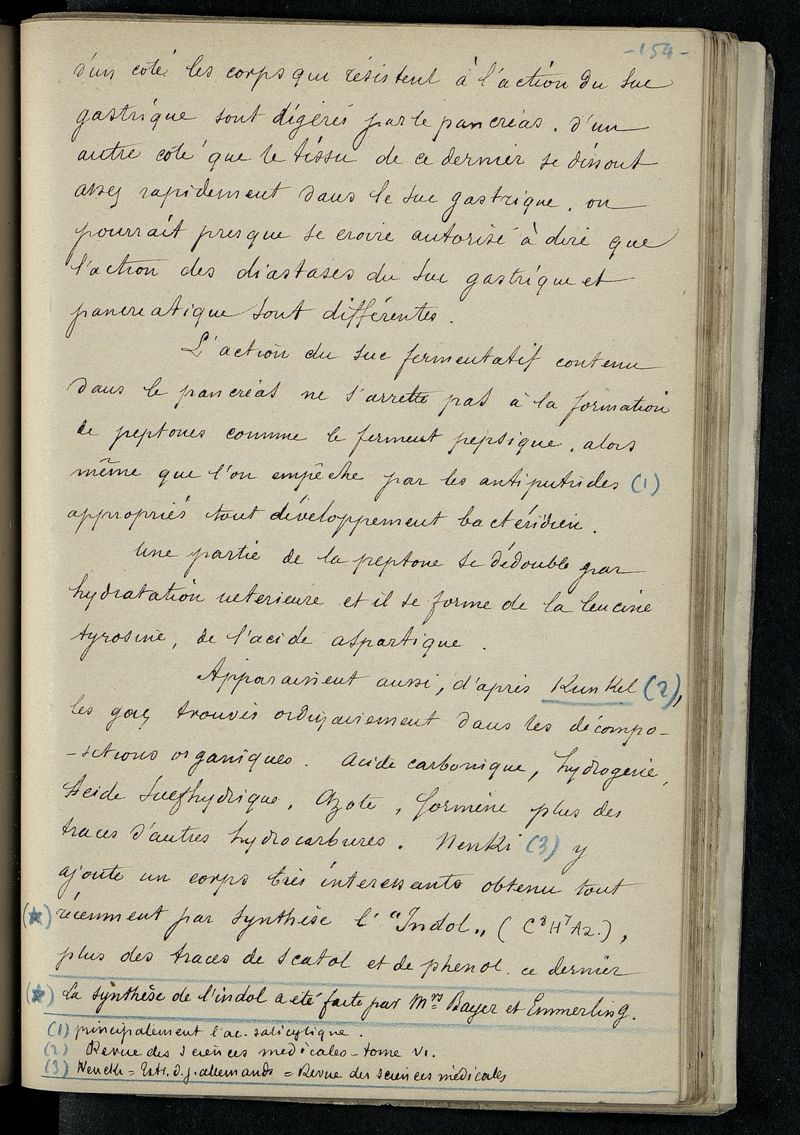 -154-
d'un coté les corps qui résistent à l'action du suc
gastrique sont digérés par le pancréas. d'un
autre coté que le tissu de ce dernier se dissout
assez rapidement dans le suc gastrique, on
pourrait presque se croire autorisé à dire que
l'action des diastases du suc gastrique et
pancreatique sont différentes.
L'action du suc fermentatif contenu
dans le pancréas ne s'arrette pas à la formation
de peptones comme le ferment pepsique, alors
même que l'on empêche par les antiputrides (1)
appropriés tout développement bactéridien.
Une partie de la peptone se dédouble par
hydratation ulterieure et il se forme de la leucine
tyrosine, de l'acide aspartique.
Apparaissent aussi, d'après Kunkel (2),
les gaz trouvés ordinairement dans les décompo-
-sitions organiques. Acide carbonique, hydrogène,
Acide Sulfhydrique, Azote, formène plus des
traces d'autres hydrocarbures. Nenki (3) y
ajoute un corps très interessants obtenu tout
(★) récemment par synthèse l' "Indol" (C⁸H⁷Az.),
plus des traces de Scatol et de phenol. ce dernier
(★) la synthèse de l'indol a eté faite par Mrs Bayer et Emmerling.
(1) principalement l'ac. salicylique.
(2) Revue des Sciences médicales - tome VI.
(3) Nencki = Extr. d. j. allemands = Revue des sciences médicales